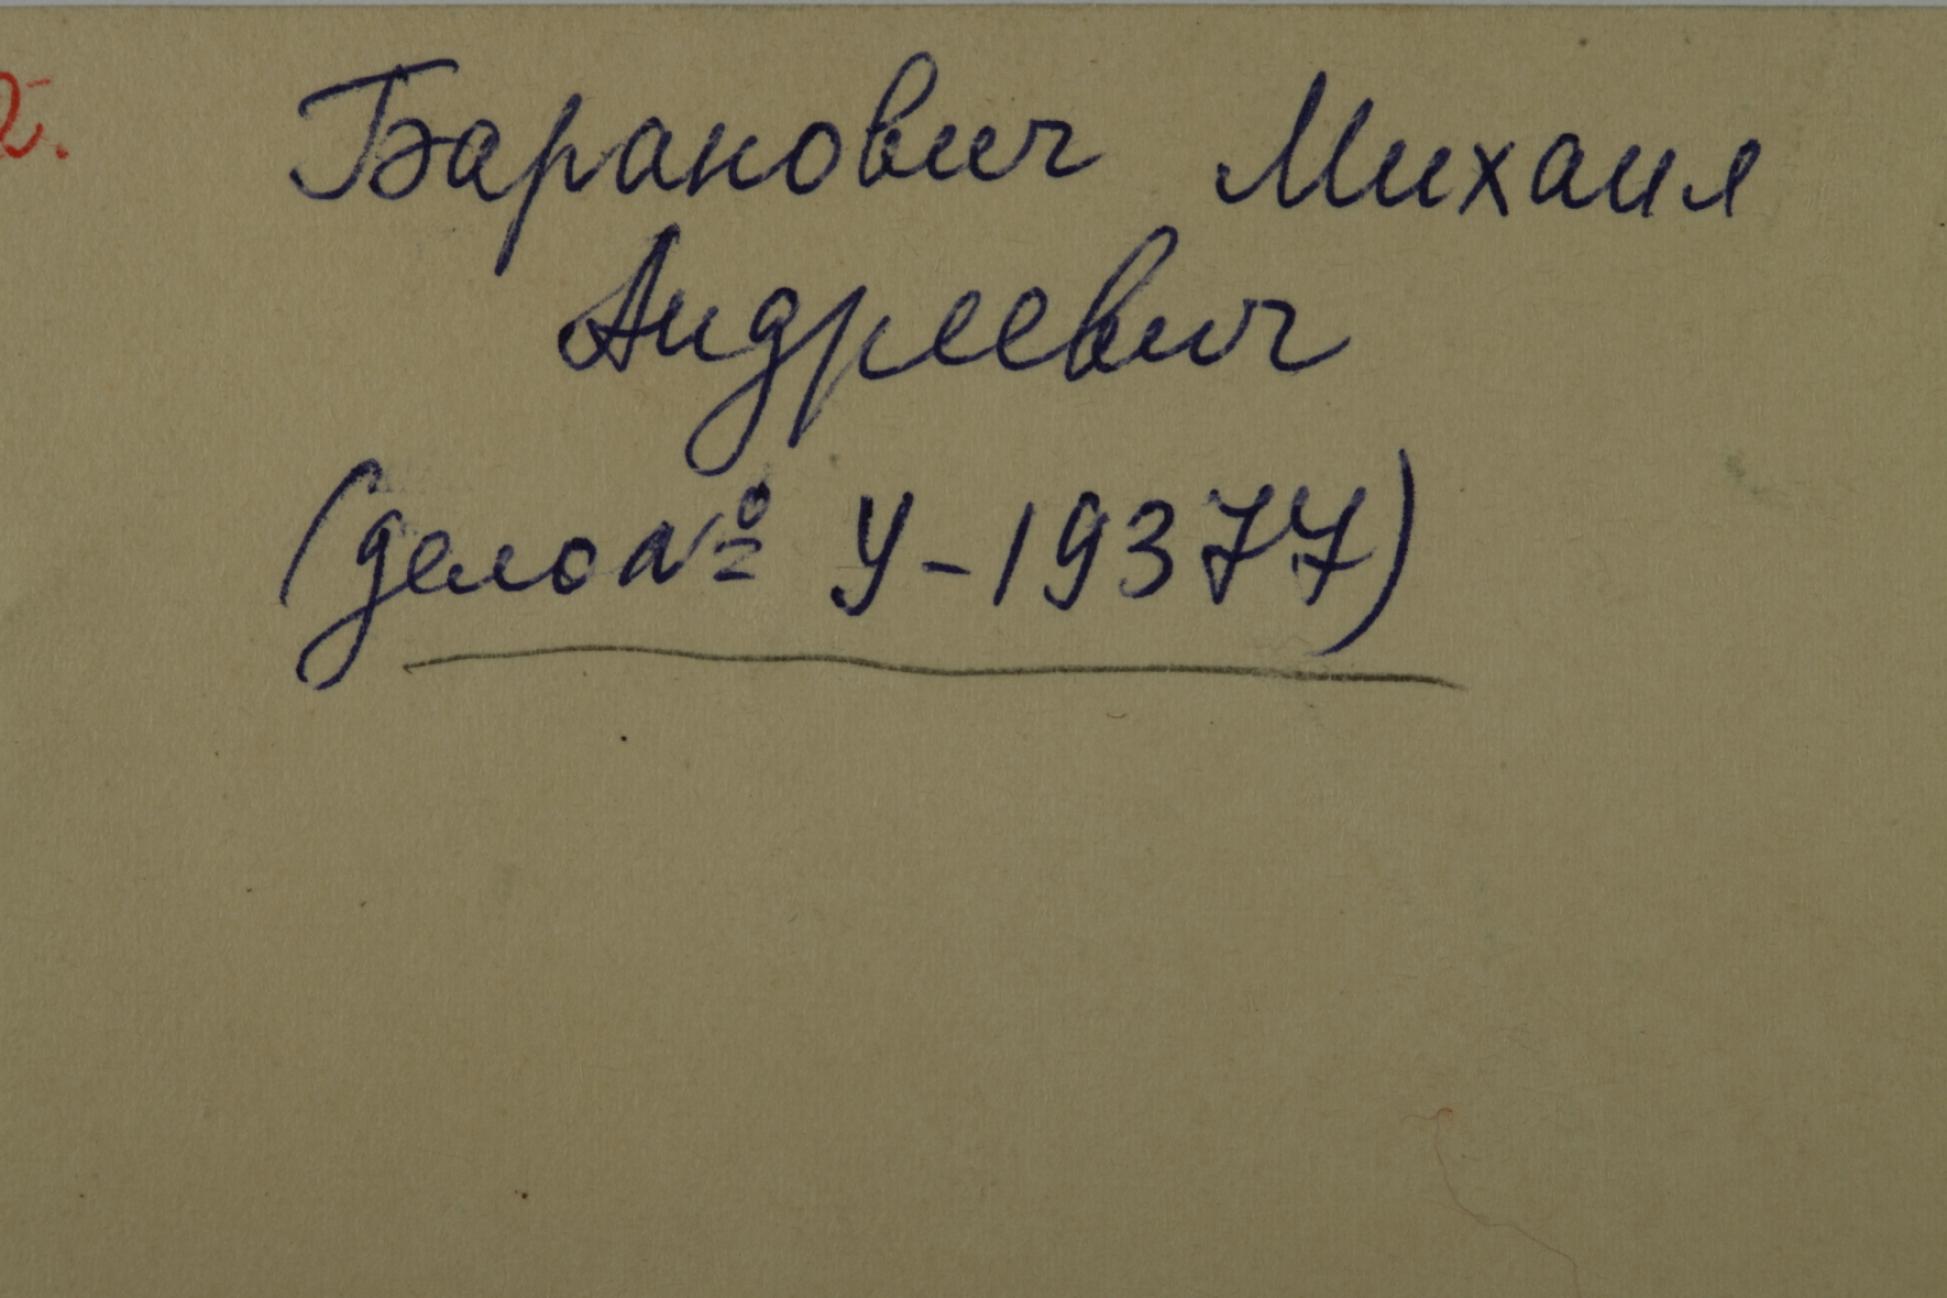 2. Баранович Михаил
Андреевич
(дело № У-19377)